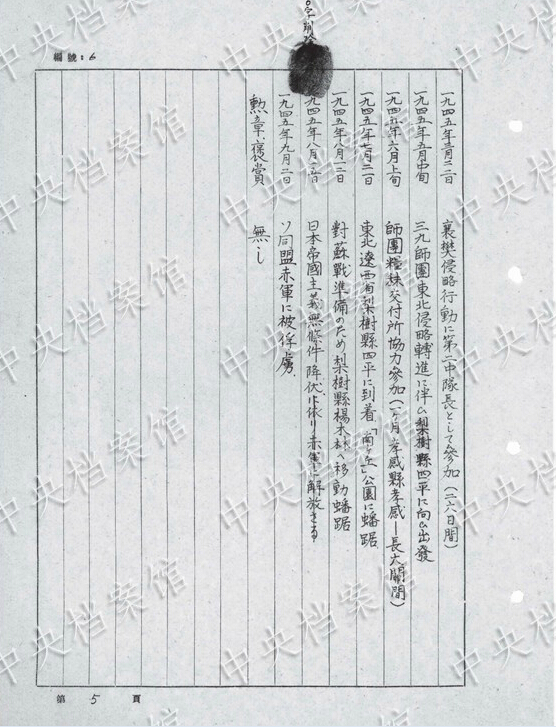 編號：6
一九四五年三月二二日 襄樊侵略行動に第二中隊長として參加（二六日間）
一九四五年五月中旬 三九師團東北侵略轉進に伴ひ梨樹縣四平に向ひ出發
一九四五年六月上旬 師團糧秣交付所協力參加（一ヶ月孝感縣孝感－長大關間）
一九四五年七月二日 東北遼西省梨樹縣四平に到着「南ヶ丘」公園に蟠踞
一九四五年八月一二日 對蘇戰準備のため梨樹縣楊木林へ移動蟠踞
一九四五年八月一五日 日本帝國主義無條件降伏に依り赤軍に解放さる
一九四五年九月二日 ソ同盟赤軍に被俘虜
勲章褒賞 無し
第 5 頁
中央档案馆